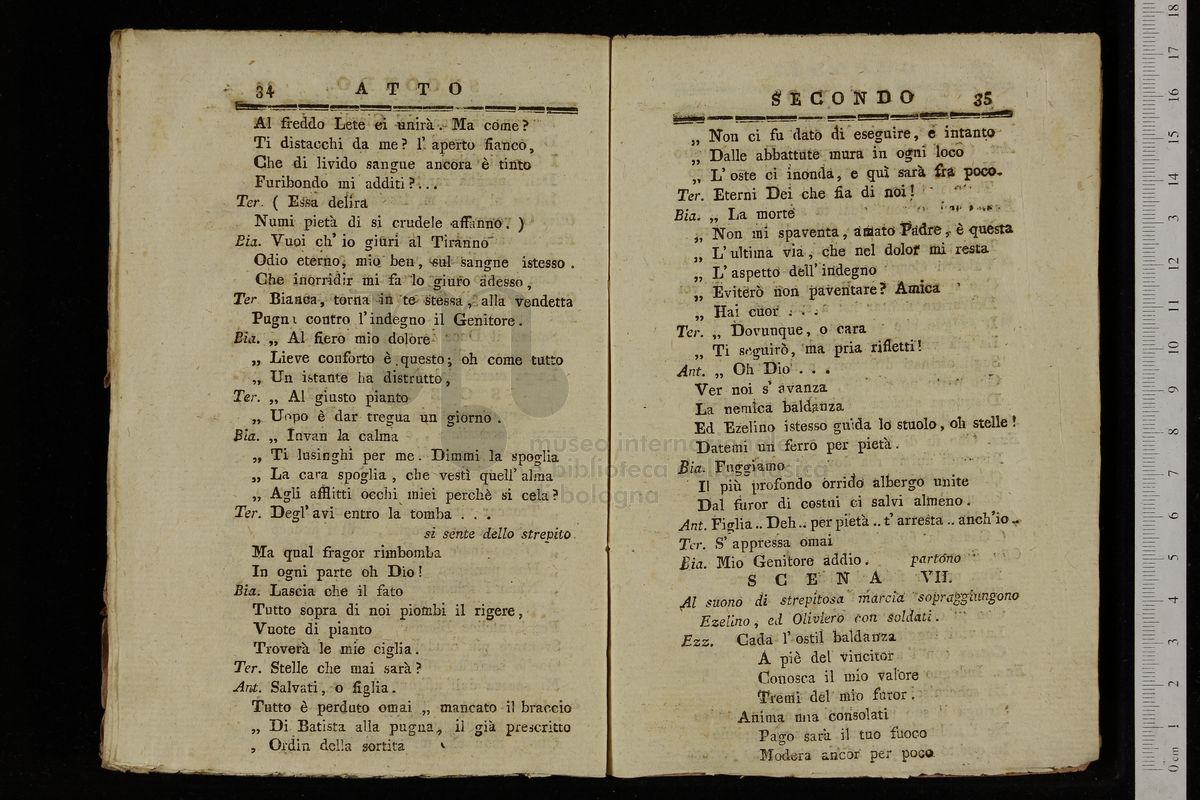 34 ATTO
Al freddo Lete ei unirà. Ma come?
Ti distacchi da me? l'aperto fianco,
Che di livido sangue ancora è tinto
Furibondo mi additi?...
Ter. ( Essa delira
Numi pietà di si crudele affanno. )
Bia. Vuoi ch' io giuri al Tiranno
Odio eterno, mio ben, sul sangne istesso.
Che inorridir mi fa lo giuro adesso,
Ter Bianca, torna in te stessa, alla vendetta
Pugni contro l'indegno il Genitore.
Bia. „ Al fiero mio dolore
„ Lieve conforto è questo; oh come tutto
„ Un istante ha distrutto,
Ter. „ Al giusto pianto
„ Uopo è dar tregua un giorno.
Bia. „ Invan la calma
„ Ti lusinghi per me. Dimmi la spoglia
„ La cara spoglia, che vestì quell' alma
„ Agli afflitti occhi miei perchè si cela?
Ter. Degl' avi entro la tomba...
si sente dello strepito.
Ma qual fragor rimbomba
In ogni parte oh Dio!
Bia. Lascia che il fato
Tutto sopra di noi piombi il rigere,
Vuote di pianto
Troverà le mie ciglia.
Ter. Stelle che mai sarà?
Ant. Salvati, o figlia.
Tutto è perduto omai „ mancato il braccio
„ Di Batista alla pugna, il già prescritto
„ Ordin della sortita
SECONDO 35
„ Non ci fu dato di eseguire, e intanto
„ Dalle abbattute mura in ogni loco
„ L' oste ci inonda, e quì sarà fra poco.
Ter. Eterni Dei che fia di noi!
Bia. „ La morte
„ Non mi spaventa, amato Padre, è questa
„ L' ultima via, che nel dolor mi resta
„ L' aspetto dell' indegno
„ Eviterò non paventare? Amica
„ Hai cuor...
Ter. „ Dovunque, o cara
„ Ti seguirò, ma pria rifletti!
Ant. „ Oh Dio...
Ver noi s' avanza
La nemica baldanza
Ed Ezelino istesso guida lo stuolo, oh stelle!
Datemi un ferro per pietà.
Bia. Fuggiamo
Il più profondo orrido albergo unite
Dal furor di costui ci salvi almeno.
Ant. Figlia.. Deh.. per pietà.. t' arresta.. anch' io..
Ter. S' appressa omai
Bia. Mio Genitore addio. partono
SCENA VII.
Al suono di strepitosa marcia sopraggiungono
Ezelino, ed Oliviero con soldati.
Ezz. Cada l' ostil baldanza
A piè del vincitor
Conosca il mio valore
Tremi del mio furor.
Anima mia consolati
Pago sarà il tuo fuoco
Modera ancor per poco
museo internazionale
e biblioteca della musica
bologna
18
17
16
15
14
13
12
11
10
9
8
7
6
5
4
3
2
1
0 cm